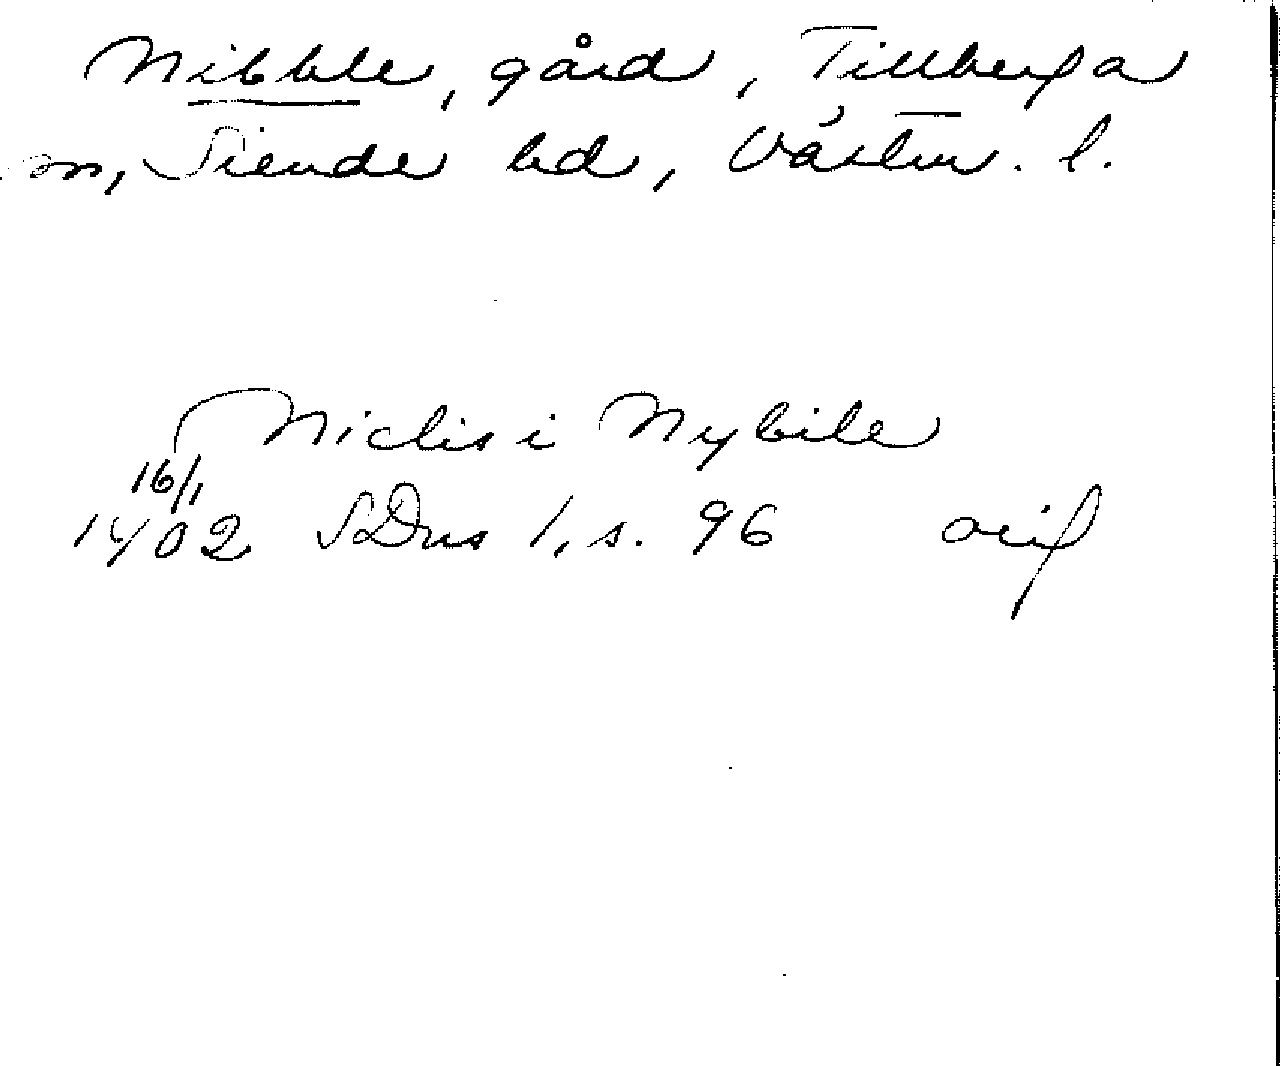 Nibble, gård, Tillberga
sn, Siende hd, Västm. l.
Niclis i Nybile
16/1
1402 SDns 1, s. 96 orig